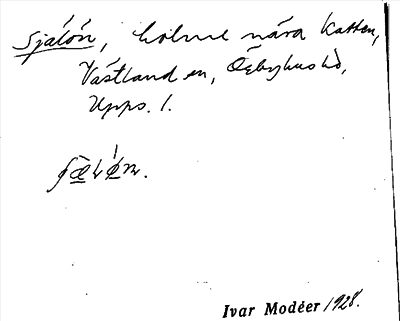 Själön, holme nära Katten,
Västland sn, Örbyhus hd,
Upps. l.
Ivar Modéer 1928.